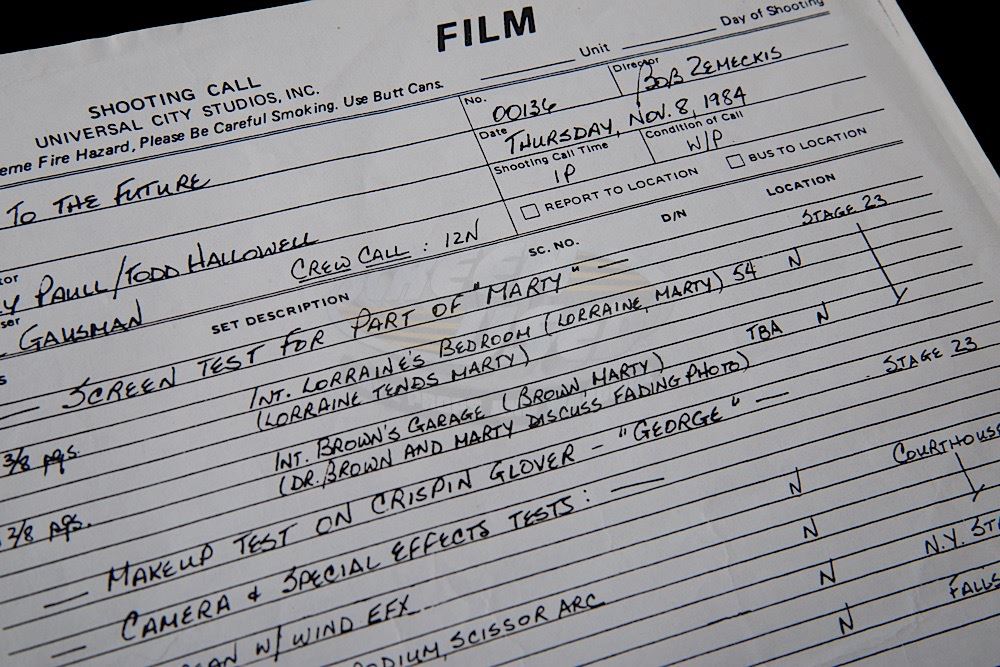 FILM
Unit
Day of Shooting
SHOOTING CALL
UNIVERSAL CITY STUDIOS, INC.
Fire Hazard, Please Be Careful Smoking. Use Butt Cans.
No. 00136
Director BOB ZEMECKIS
Date THURSDAY, NOV. 8, 1984
Shooting Call Time 1P
Condition of Call W/P
REPORT TO LOCATION
BUS TO LOCATION
TO THE FUTURE
PAULL/TODD HALLOWELL
GAUSMAN
CREW CALL: 12N
SET DESCRIPTION SC. NO. D/N LOCATION
— SCREEN TEST FOR PART OF "MARTY" — STAGE 23
3/8 pgs. INT. LORRAINE'S BEDROOM (LORRAINE, MARTY) 54 N
(LORRAINE TENDS MARTY)
2/8 pgs. INT. BROWN'S GARAGE (BROWN, MARTY) TBA N
(DR. BROWN AND MARTY DISCUSS FADING PHOTO)
— MAKEUP TEST ON CRISPIN GLOVER - "GEORGE" — STAGE 23
— CAMERA & SPECIAL EFFECTS TESTS: —
N COURTHOUSE
W/ WIND EFX N
SCISSOR ARC N N.Y. ST
N FALLS